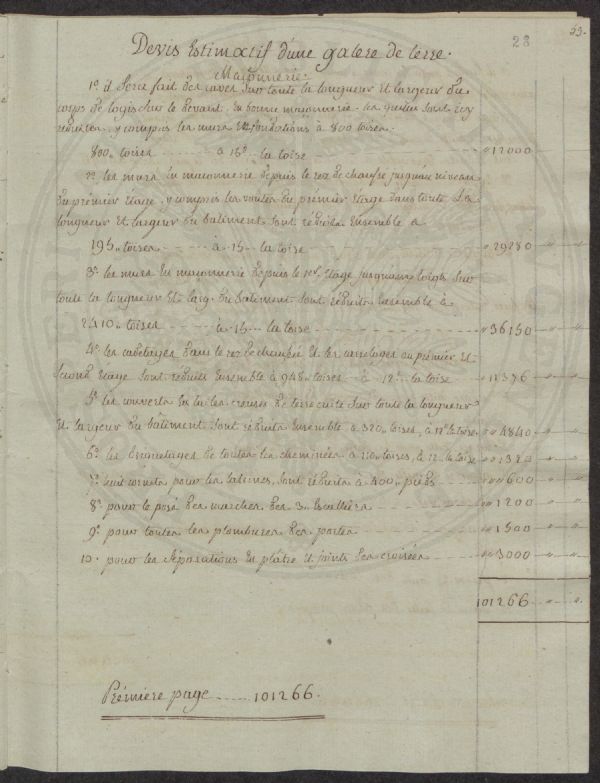 23
23.
Devis Estimatif d'une galere de terre.
Maçonnerie.
1º il Sera fait des caves Sur toute la longueur Et largeur du
corps de logis Sur le devant, En bonne maçonnerie, les quelles sont icy
réduites, y compris les murs Et fondations à 800 toises.
800. toises à 15# la toise "12000
2º les murs En maconnerie depuis le rez de chaussé jusqu'au niveau
du prémier étage, y compris les voutes du prémier étage dans toute La
longueur Et largeur du batiment sont réduits Ensemble à
195. toises à 15 la toise "29280
3º les murs En maçonnerie depuis le 1er étage jusquaux toits Sur
toute la longueur Et larg. du batiment sont réduits Ensemble à
2410. toises à 15 la toise "36150
4º les cadetages dans le rez de chaussée Et les carrelages au prémier Et
Second étage sont réduits Ensemble à 948. toises à 12# la toise "11376
5º les couverts En tuiles creuses de terre cuite Sur toute la longueur
Et largeur du batiment sont réduits Ensemble à 320. toises, à 12# la toise "4840
6º les briquetages de toutes les cheminées à 110. toises, à 12 la toise "1320
7º huit cornets pour les latrines, sont réduits à 400. pieds "600
8º pour la pose des marches des 3. Escalliers "1200
9º pour toutes les plombures des portes "1500
10º pour les Séparations En plâtre Et joints des croisées "3000
101266
Prémiere page 101266.